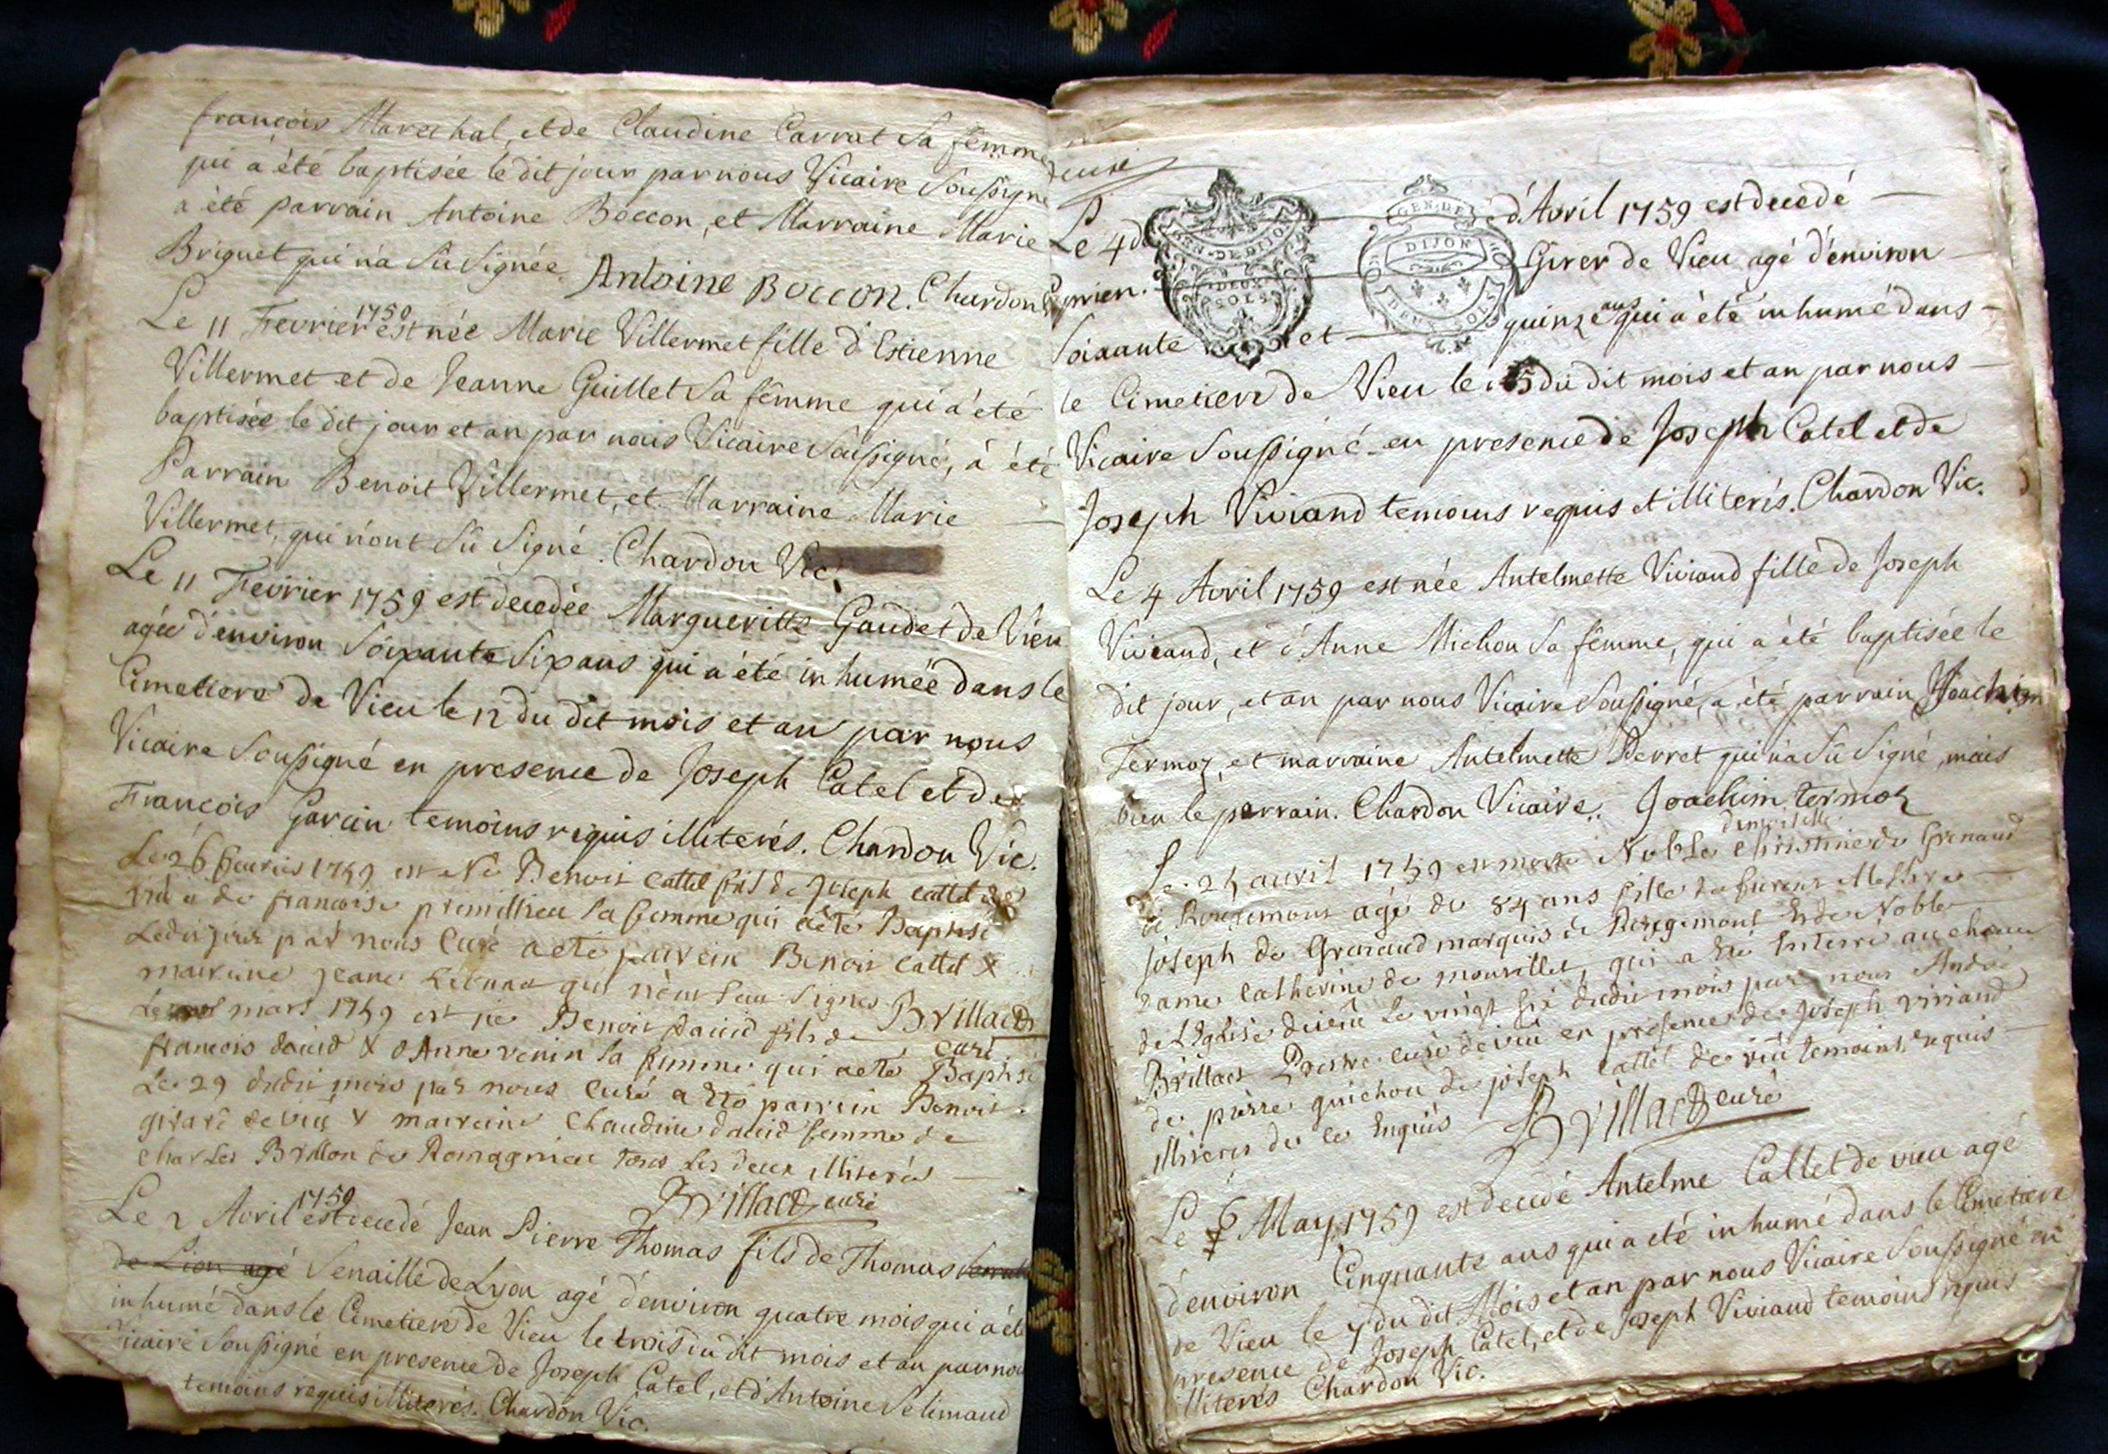 françois Marechal, et de Claudine Carrat Sa fêmme
qui à été baptisée le dit jour par nous Vicaire Soussigné
a èté parrain Antoine Boccon, et Marraine Marie
Briguet qui n'a Sû Signée. Antoine Boccon. Chardon
Le 11 Fevrier 1759 est née Marie Villermet fille d'Estienne
Villermet et de Jeanne Guillet Sa fêmme qui a'été
baptisée le dit jour et an par nous Vicaire Soussigné, à été
Parrain Benoit Villermet, et Marraine Marie
Villermet, qui n'ont Sû Signé. Chardon Vic.
Le 11 Fevrier 1759 est decedée Margueritte Gaudet de Vieu
agée d'environ Soixante Six ans qui a été inhumée dans le
Cimetiere de Vieu le 12 du dit mois et an par nous
Vicaire Soussigné en presence de Joseph Catel et de
François Garcin temoins requis illiterés. Chardon Vic.
Le 26 feuvrier 1759 est Né Benoit Cattel fils de Joseph Cattel de
vieu & de francoise premillieu Sa femme qui a été Baptisé
Ledit jour par nous Curé a eté parrein Benoit Cattel &
marrine Jeane qui n'ont Seu Signes Brillact
curé
Le mars 1759 est né Benoit David fils de
francois david & d'Anne venin Sa femme qui a eté Baptisé
Le 29 dudit mois par nous Curé a eté parrein Benoit
girard de vieu & marreine Claudine david femme de
Charles Brillon de Romagnieu tous Les deux illiterés
Brillact curé
Le 2 Avril 1759 est decedé Jean Pierre Thomas fils de Thomas
de Lion agé Senaille de Lyon agé d'environ quatre mois qui à été
inhumé dans le Cimetiere de Vieu le trois du dit mois et an par nous
Vicaire Soussigné en presence de Joseph Catel, et d'Antoine Velimaud
temoins requis illiterés. Chardon Vic.
curé
Le 4 d'Avril 1759 est decedé
GEN. DE DIJON
DEUX SOLS
GEN. DE
DIJON
DEUX SOLS
Girer de Vieu agé d'environ
Soixante et quinze ans qui à été inhumé dans
le Cimetiere de Vieu le 5 du dit mois et an par nous
Vicaire Soussigné en presence de Joseph Catel et de
Joseph Viviand temoins requis et illiterés. Chardon Vic.
Le 4 Avril 1759 est née Antelmette Viviand fille de Joseph
Viviand, et d'Anne Michou Sa fêmme, qui a été baptisée le
dit jour, et an par nous Vicaire Soussigné, a été parrain Joachim
Termoz, et marraine Antelmette Perret qui n'a Sû Signé, mais
bien le parrain. Chardon Vicaire. Joachim termoz
Le 25 avril 1759 est morte Noble demoiselle Christine de Grenaud
de Rougemont agé de 84 ans fille de Messire
Joseph de Grenaud marquis de Rougemont & de Noble
dame Catherine de mouvillet, qui a été Enterré au chœur
de L'Eglise de vieu Le vingt Six dudit mois par nous André
Brillact Prestre curé de vieu en présence de Joseph viviand
de pierre guichou de joseph Cattel de vieu temoins requis
illiterés de ce Enquis Brillact curé
Le 6 May 1759 est decedé Antelme Cattet de vieu agé
d'environ Cinquante ans qui a été inhumé dans le Cimetiere
de Vieu le 7 du dit Mois et an par nous Vicaire Soussigné en
presence de Joseph Catel, et de Joseph Viviand temoins requis
illiterés Chardon Vic.